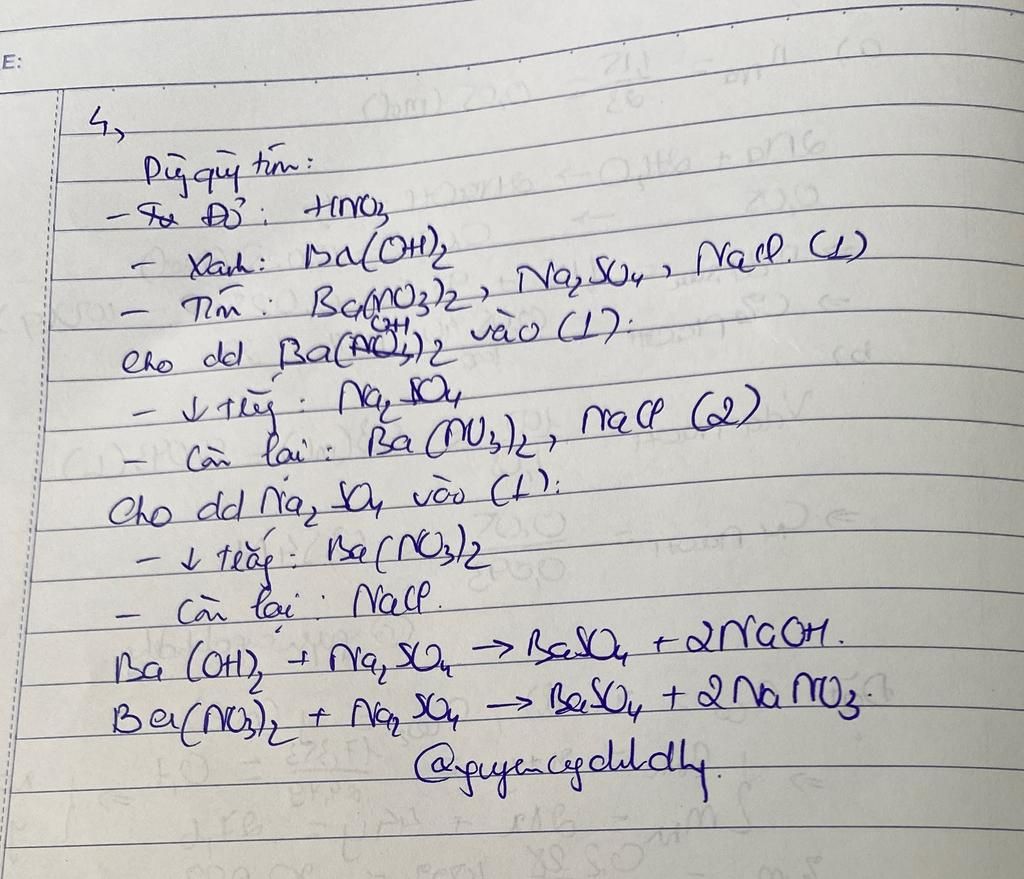 E:
4,
Dùg quỳ tím:
- Đỏ: HNO3
- Xanh: Ba(OH)2
- Tím: Ba(NO3)2, Na2SO4, NaCl. (1)
Cho dd Ba(OH)2 vào (1):
- ↓ trắg: Na2SO4
- Còn lại: Ba(NO3)2, NaCl (2)
Cho dd Na2SO4 vào (1):
- ↓ trắg: Ba(NO3)2
- Còn lại: NaCl.
Ba(OH)2 + Na2SO4 → BaSO4 + 2NaOH.
Ba(NO3)2 + Na2SO4 → BaSO4 + 2NaNO3.